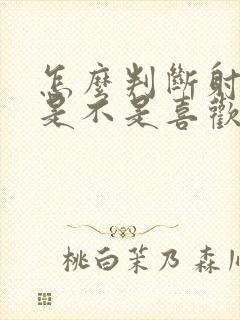 怎麼判斷射
是不是喜歡
桃白茉乃 森川